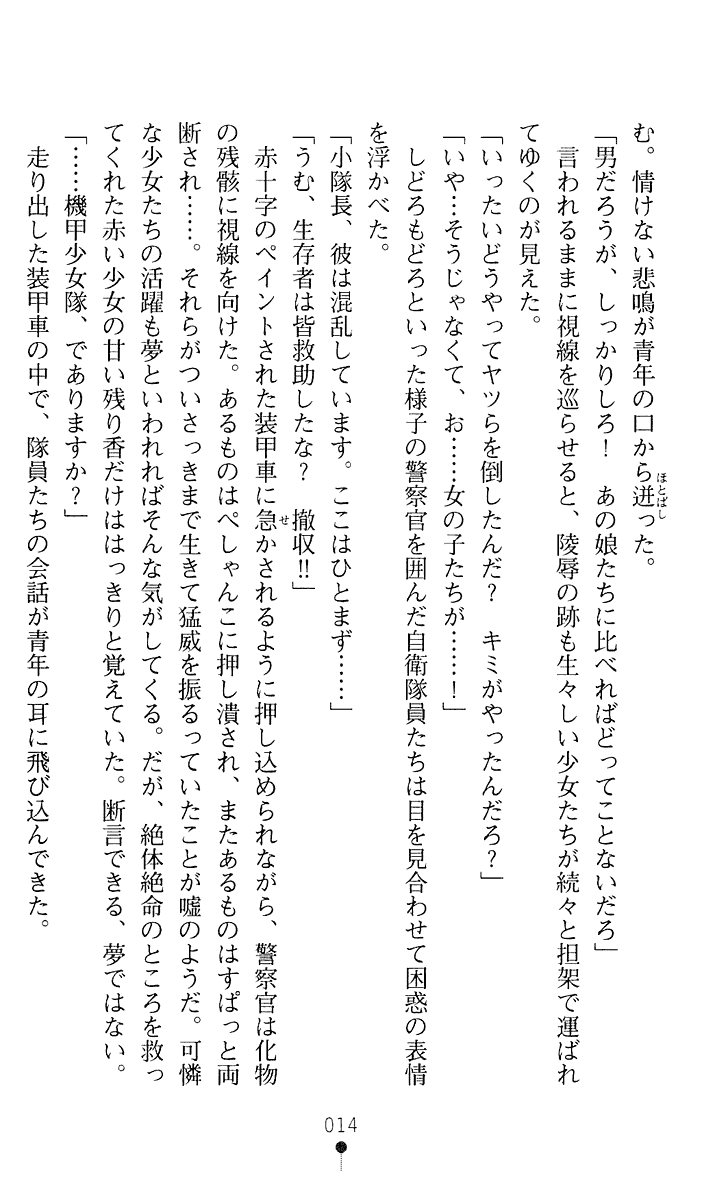 む。情けない悲鳴が青年の口から迸った。
「男だろうが、しっかりしろ！　あの娘たちに比べればどってことないだろ」
言われるままに視線を巡らせると、陵辱の跡も生々しい少女たちが続々と担架で運ばれ
てゆくのが見えた。
「いったいどうやってヤツらを倒したんだ？　キミがやったんだろ？」
「いや…そうじゃなくて、お……女の子たちが……！」
しどろもどろといった様子の警察官を囲んだ自衛隊員たちは目を見合わせて困惑の表情
を浮かべた。
「小隊長、彼は混乱しています。ここはひとまず……」
「うむ、生存者は皆救助したな？　撤収!!」
赤十字のペイントされた装甲車に急かされるように押し込められながら、警察官は化物
の残骸に視線を向けた。あるものはぺしゃんこに押し潰され、またあるものはすぱっと両
断され……。それらがついさっきまで生きて猛威を振るっていたことが嘘のようだ。可憐
な少女たちの活躍も夢といわれればそんな気がしてくる。だが、絶体絶命のところを救っ
てくれた赤い少女の甘い残り香だけははっきりと覚えていた。断言できる、夢ではない。
「……機甲少女隊、でありますか？」
走り出した装甲車の中で、隊員たちの会話が青年の耳に飛び込んできた。
ほとばし
せ
014